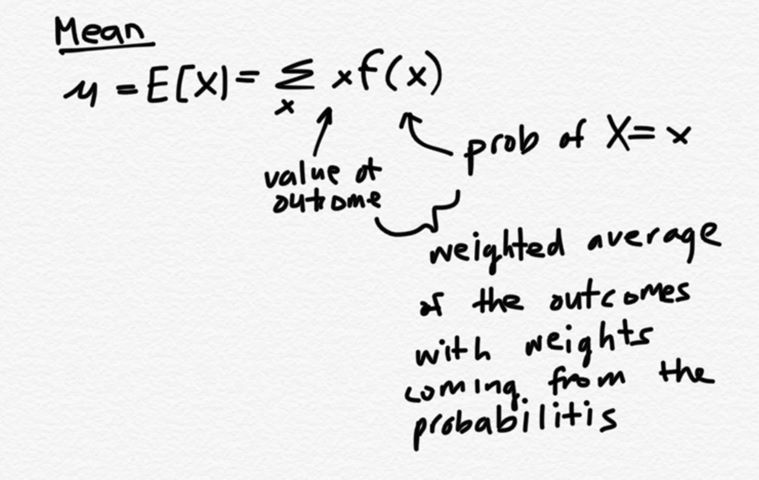 Mean
μ = E[X] = Σ x f(x)
x
value of
outcome
prob of X = x
weighted average
of the outcomes
with weights
coming from the
probabilitis